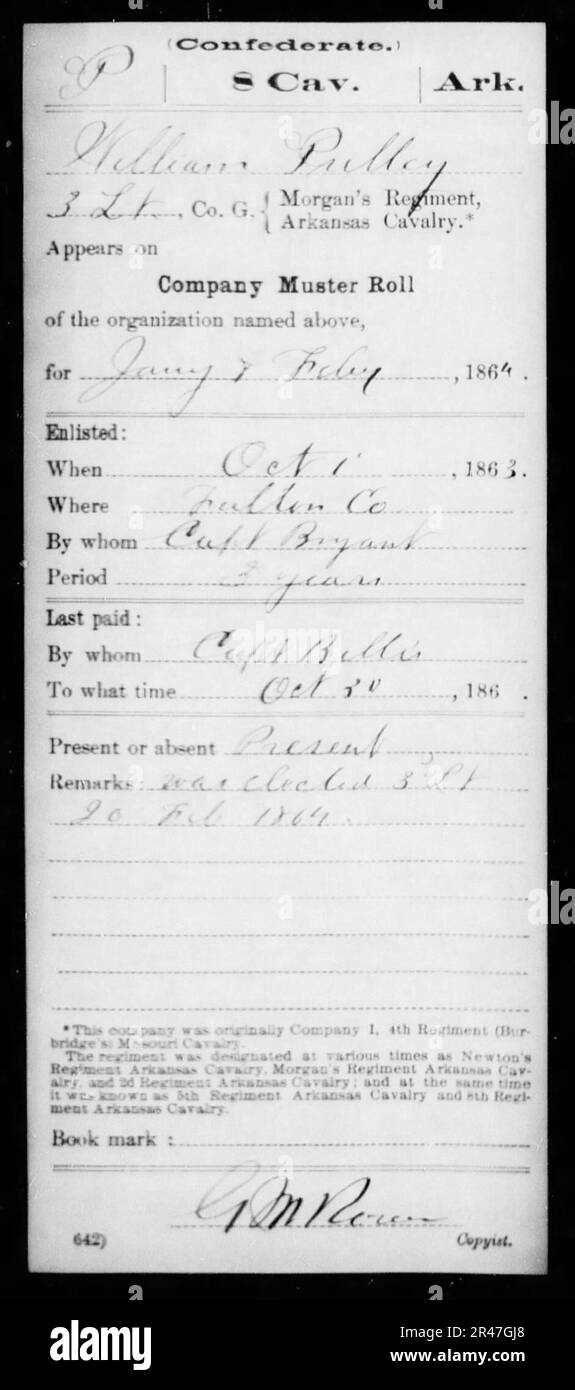 (Confederate.)
P | 8 Cav. | Ark.
William Pulley
3 Lt, Co. G. { Morgan's Regiment,
Arkansas Cavalry.*
Appears on
Company Muster Roll
of the organization named above,
for Jany & Feby, 1864.
Enlisted:
When Oct 1, 1863.
Where Fulton Co
By whom Capt Bryant
Period 3 years
Last paid:
By whom Capt
To what time Oct 30, 186 .
Present or absent Present
Remarks: was elected 3 Lt
20 Feb 1864.
*This company was originally Company I, 4th Regiment (Bur-
bridge's) Missouri Cavalry.
The regiment was designated at various times as Newton's
Regiment Arkansas Cavalry, Morgan's Regiment Arkansas Cav-
alry, and 2d Regiment Arkansas Cavalry; and at the same time
it was known as 5th Regiment Arkansas Cavalry and 8th Regi-
ment Arkansas Cavalry.
Book mark:
G M
642)
Copyist.
a
alamy
Image ID: 2R47GJ8
www.alamy.com